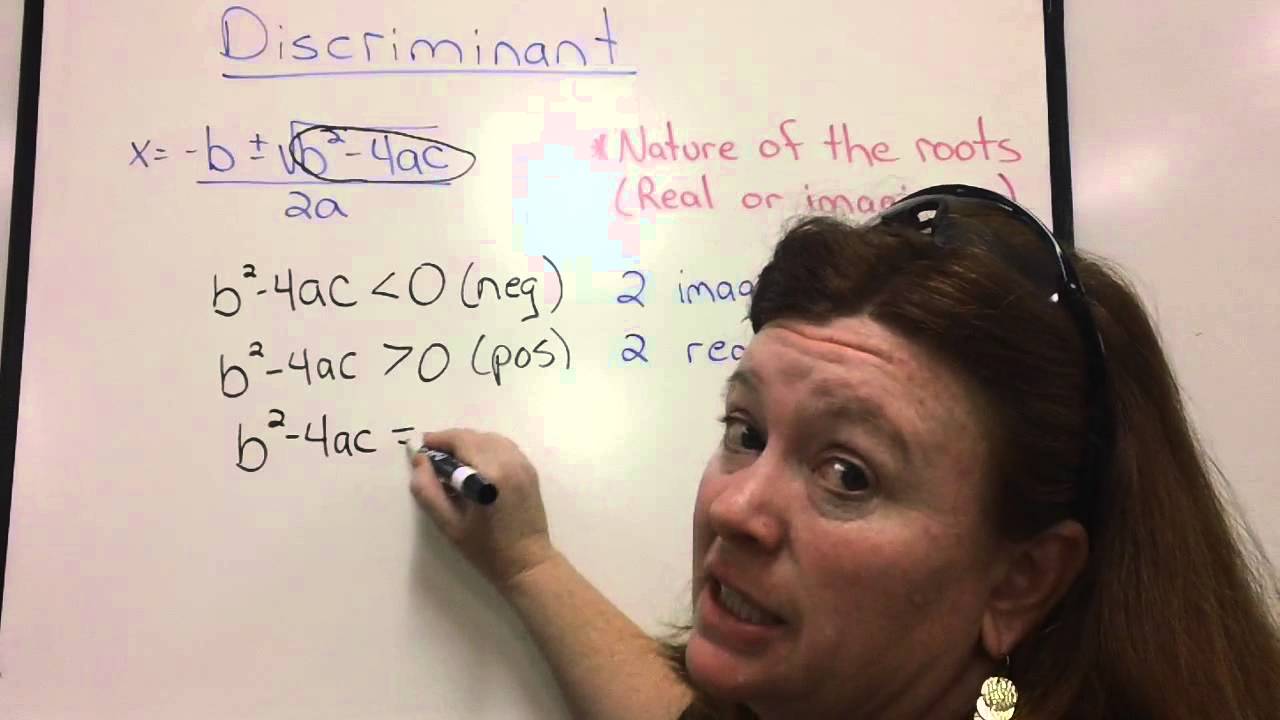 Discriminant
x = -b ± √b² - 4ac
2a
* Nature of the roots
(Real or
b² - 4ac < 0 (neg) 2
b² - 4ac > 0 (pos) 2
b² - 4ac =